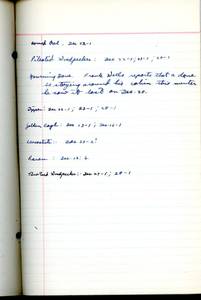 Hawk Owl, Dec 22-1
Pileated Woodpecker: Dec 22-1; 23-1; 28-1
Mourning Dove. Frank Wells reports that a dove
is staying around his cabin this winter
he saw it last on Dec. 28.
Dipper: Dec 22-1; 23-1; 28-1
Golden Eagle: Dec 13-1; Dec 16-1
Raven: Dec. 12: 6
Woodpecker: Dec 27-1; 28-1